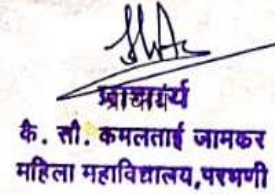 प्राचार्य
कै. सौ. कमलताई जामकर
महिला महाविद्यालय, परभणी